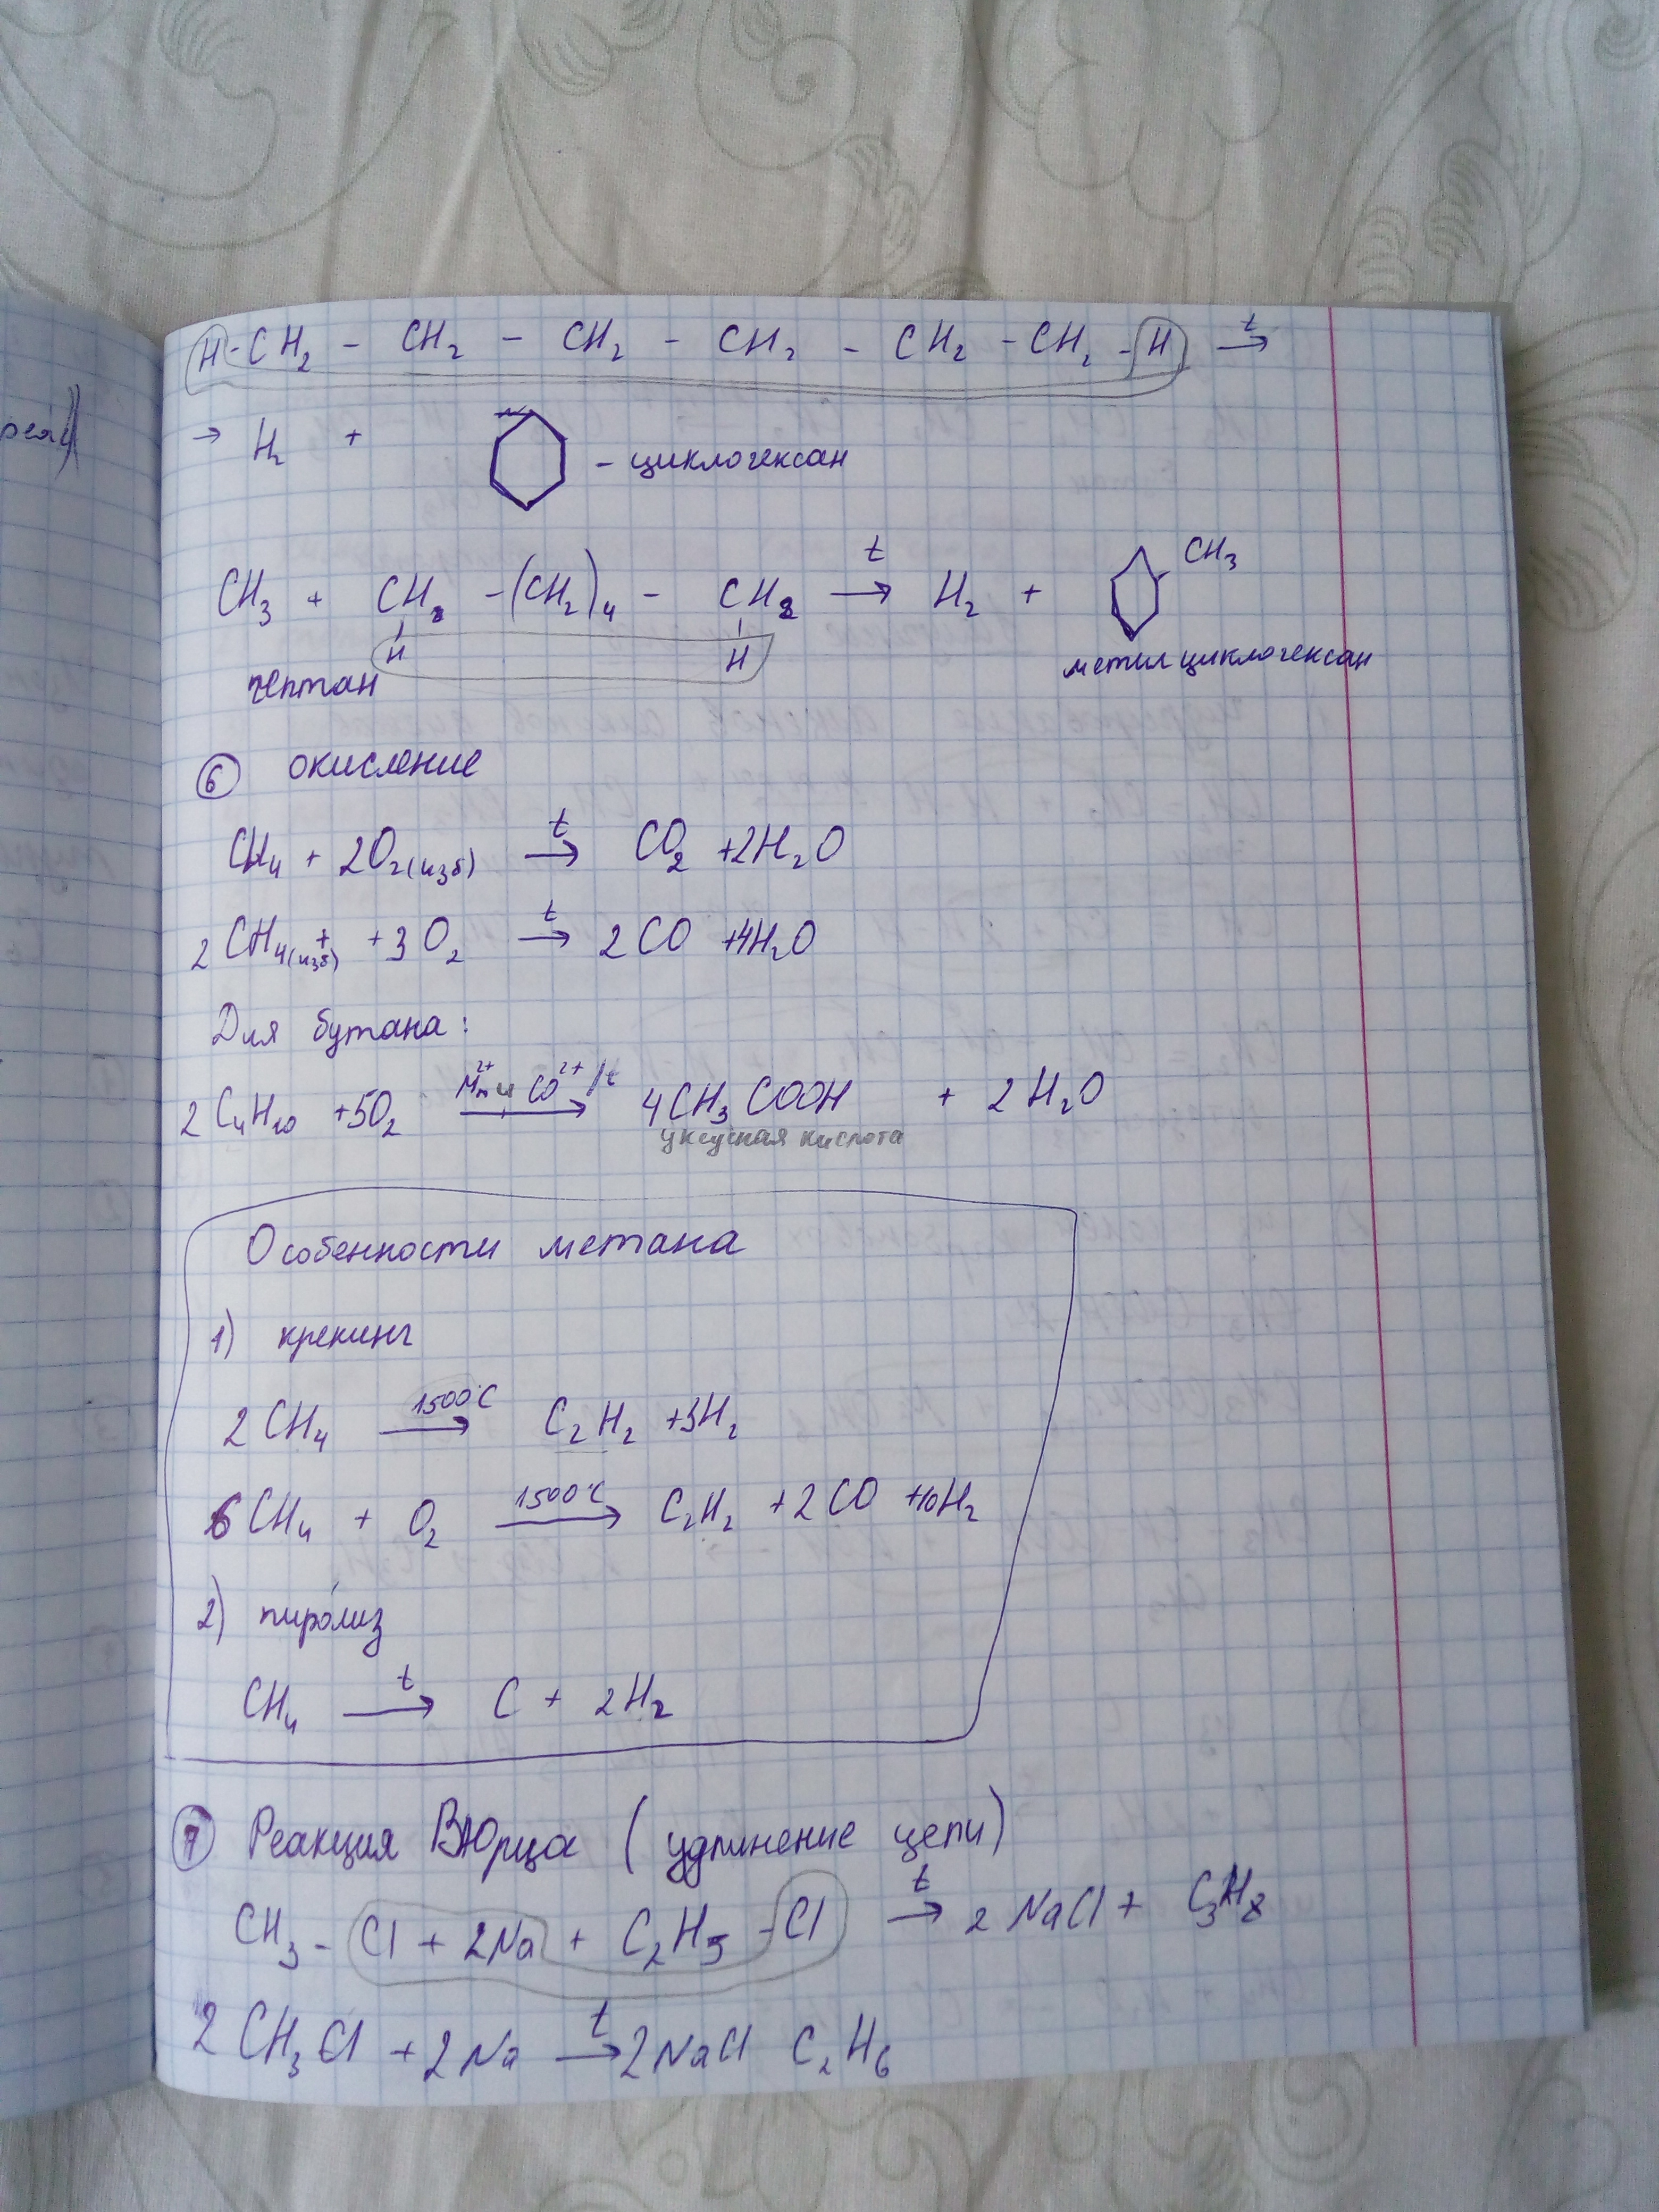 H-CH₂ - CH₂ - CH₂ - CH₂ - CH₂ - CH₂ - H t→
→ H₂ + - циклогексан
CH₃ + CH₂ -(CH₂)₄ - CH₂ t→ H₂ + CH₃
H H
гептан метилциклогексан
6 окисление
CH₄ + 2O₂(изб) t→ CO₂ +2H₂O
2CH₄(изб) +3O₂ t→ 2CO +4H₂O
Для бутана:
2C₄H₁₀ +5O₂ Mn²⁺ и CO²⁺/t→ 4CH₃COOH + 2H₂O
уксусная кислота
Особенности метана
1) крекинг
2CH₄ 1500°C→ C₂H₂ +3H₂
6CH₄ + O₂ 1500°C→ C₂H₂ +2CO +10H₂
2) пиро́лиз
CH₄ t→ C + 2H₂
7 Реакция Вюрца (удлинение цепи)
CH₃ - Cl + 2Na + C₂H₅ - Cl t→ 2NaCl + C₃H₈
2CH₃Cl +2Na t→ 2NaCl C₂H₆